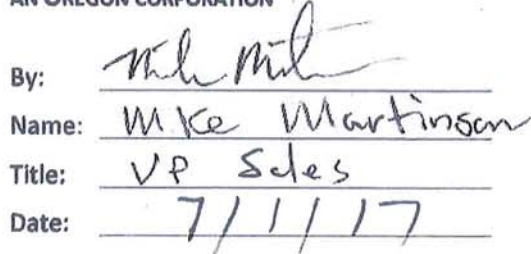 AN OREGON CORPORATION
By:
Name: Mike Martinson
Title: VP Sales
Date: 7/1/17